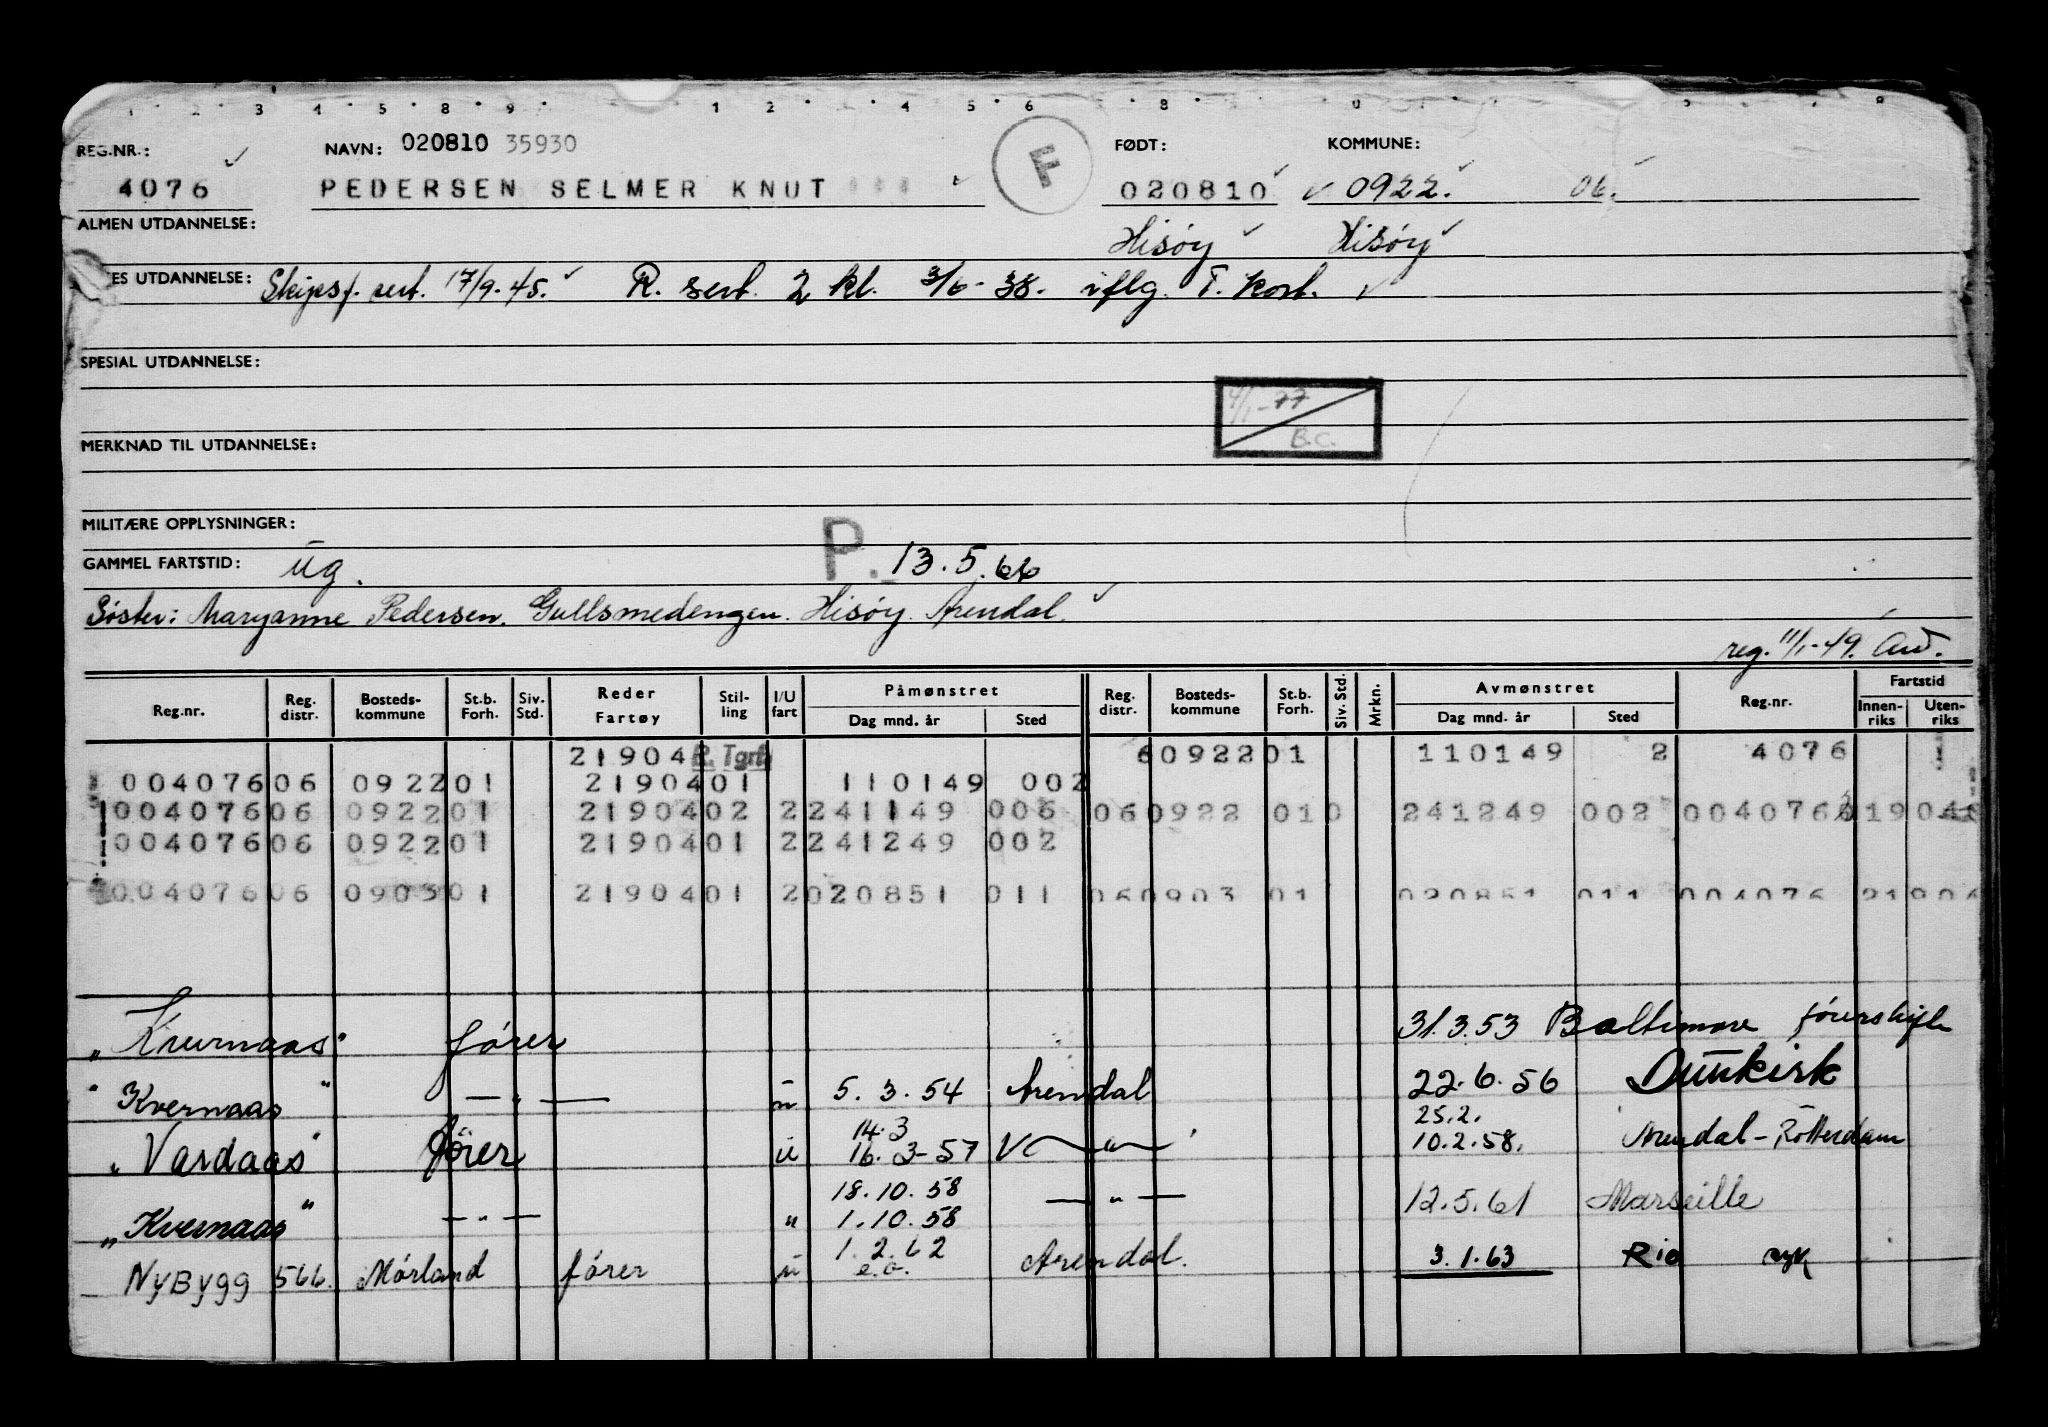 1 · 2 · 3 4 · 5 · 8 · 9 · 1 2 · · 4 · 5 · 6 · 8 · 0
REG.NR.: NAVN: 020810 35930 F FØDT: KOMMUNE:
4076 PEDERSEN SELMER KNUT 020810 0922. 06.
ALMEN UTDANNELSE: Hisøy Hisøy
ES UTDANNELSE: Skipsf. sert. 17/9-45. R. sert. 2 kl. 3/6-38. iflg. T. kort.
SPESIAL UTDANNELSE:
4/1-77
B.C.
MERKNAD TIL UTDANNELSE:
MILITÆRE OPPLYSNINGER:
GAMMEL FARTSTID: ug. P. 13.5.66
Søster: Maryanne Pedersen. Gullsmedengen. Hisøy. Arendal.
reg. 11/1-49.
Reg.nr. Reg. distr. Bosteds-kommune St.b. Forh. Siv. Std. Reder Fartøy Stil-ling I/U fart Påmønstret Dag mnd. år Sted Reg. distr. Bosteds-kommune St.b. Forh. Siv. Std. Mrkn. Avmønstret Dag mnd. år Sted Reg.nr. Fartstid Innen-riks Uten-riks
21904 R. Tgrf. 6092201 110149 2 4076 1
00407606 092201 2190401 110149 002
00407606 092201 2190402 2241149 006 060922 010 241249 002 004076
00407606 092201 2190401 2241249 002
00407606 090301 2190401 2020851 011 060903 01 020851 011 004076 21906
"Kvernaas" fører 31.3.53 Baltimore
"Kvernaas" — " — u 5.3.54 Arendal 22.6.56 Dunkirk
14.3 25.2.
"Vardaas" fører u 16.3-57 — " — 10.2.58. Arendal - Rotterdam
18.10.58
"Kvernaas" — " — " 1.10.58 — " — 12.5.61 Marseille
1.2.62
NyBygg 566. Mørland fører u e.o. Arendal. 3.1.63 Rio syk